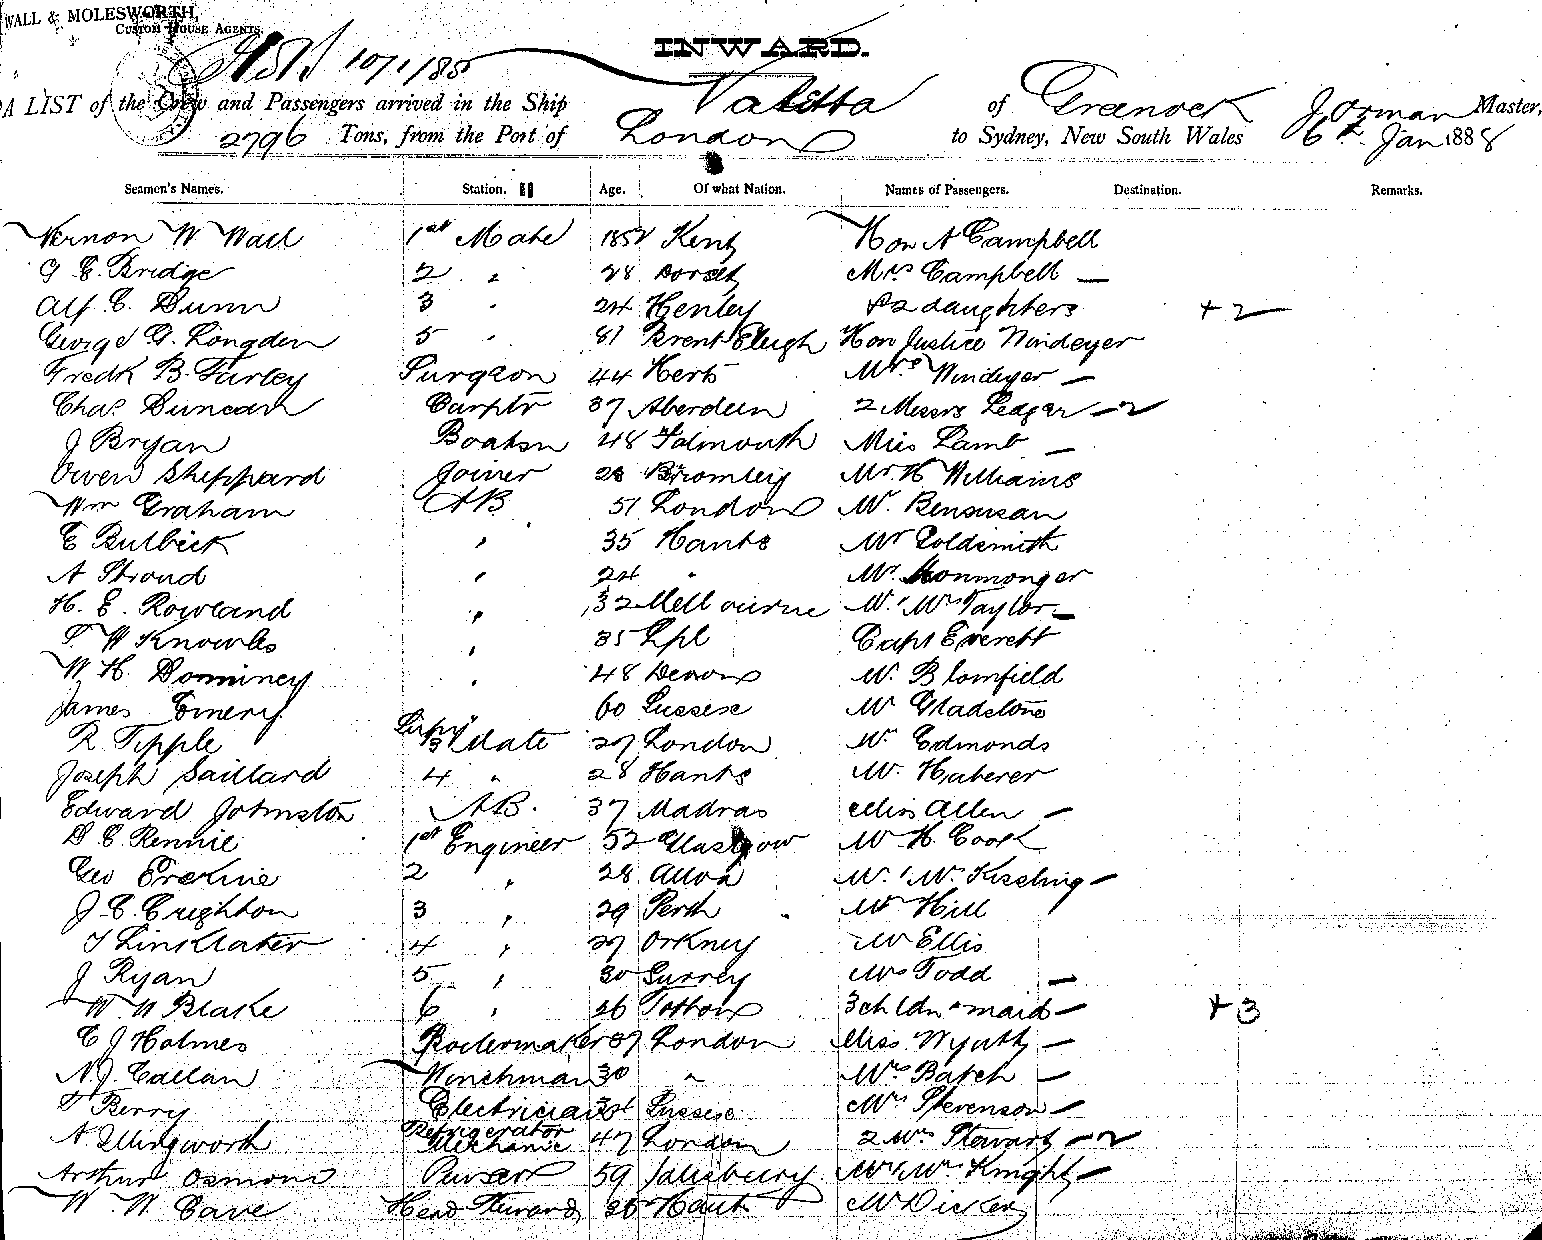 WALL & MOLESWORTH,
CUSTOM HOUSE AGENTS.
10/1/88
INWARD.
A LIST of the Crew and Passengers arrived in the Ship Valetta of Greenock J Orman Master,
2796 Tons, from the Port of London to Sydney, New South Wales 6th Jan 1888
Seamen's Names. Station. Age. Of what Nation. Names of Passengers. Destination. Remarks.
Vernon W Wall 1st Mate Kent Hon A Campbell
G E Bridge 2 " 28 Dorset Mrs Campbell —
Alf E Dunn 3 " 24 Henley & 2 daughters + 2
George G. Longden 5 " Brent Eleigh Hon Justice Windeyer
Fredk B. Farley Surgeon 44 Herts Mrs Windeyer —
Chas. Duncan Carptr 37 Aberdeen 2 Messrs Ledger — 2
J Bryan Boatsn 48 Falmouth Miss Lamb —
Owen Sheppard Joiner 28 Bromley Mr H Williams
Wm Graham AB 51 London Mr. Bensusan
E Bulbeck " 35 Hants Mr Goldsmith
A Stroud " 24 " Mr. Ironmonger
H. E. Rowland " 32 Mellbourne Mr. " Mrs Taylor —
T W Knowles " 35 Lpl Capt Everett
W H Dominey " 48 Devon Mr. Blomfield
James Emery 60 Sussex Mr Gladstone
R Tipple 3 Mate 27 London Mr Edmonds
Joseph Saillard 4 " 28 Hants Mr. Haberer
Edward Johnston AB. 37 Madras Miss Allen —
D. C. Rennie 1st Engineer 52 Glasgow Mr H Cook
Geo Erskine 2 " 28 Alloa Mr. " Mrs Kissling —
J. C. Crighton 3 " 29 Perth Mr Hill
T Linklater 4 " 27 Orkney Mr Ellis
J Ryan 5 " 30 Surrey Mrs Todd —
W W Blake 6 " 26 Totton 3 chldn " maid — + 3
C J Holmes Boilermaker 37 London Miss Wyatt —
N. J. Callan Winchman 30 " Mrs Batch —
T Berry Electrician Sussex Mrs Stevenson —
A Illingworth Refrigerator Mechanic 47 London 2 Mrs Stewart — 2
Arthur Osmond Purser 59 Salisbury Mr " Mrs Knight —
W W Cave Head Steward 36 Hants Mr Dicken